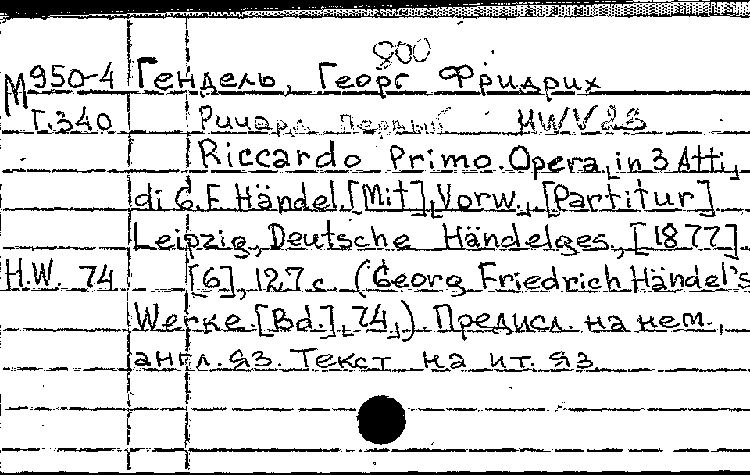 800
М950-4 Гендель, Георг Фридрих
Т.340 Ричард первый HWV 23
Riccardo Primo. Opera in 3 Atti
di G. F. Händel. [Mit] Vorw. [Partitur]
Leipzig, Deutsche Händelges., [1877].
H.W. 74 [6], 127 с. (Georg Friedrich Händel's
Werke. [Bd.] 74.) Предисл. на нем.,
англ. яз. Текст на ит. яз.